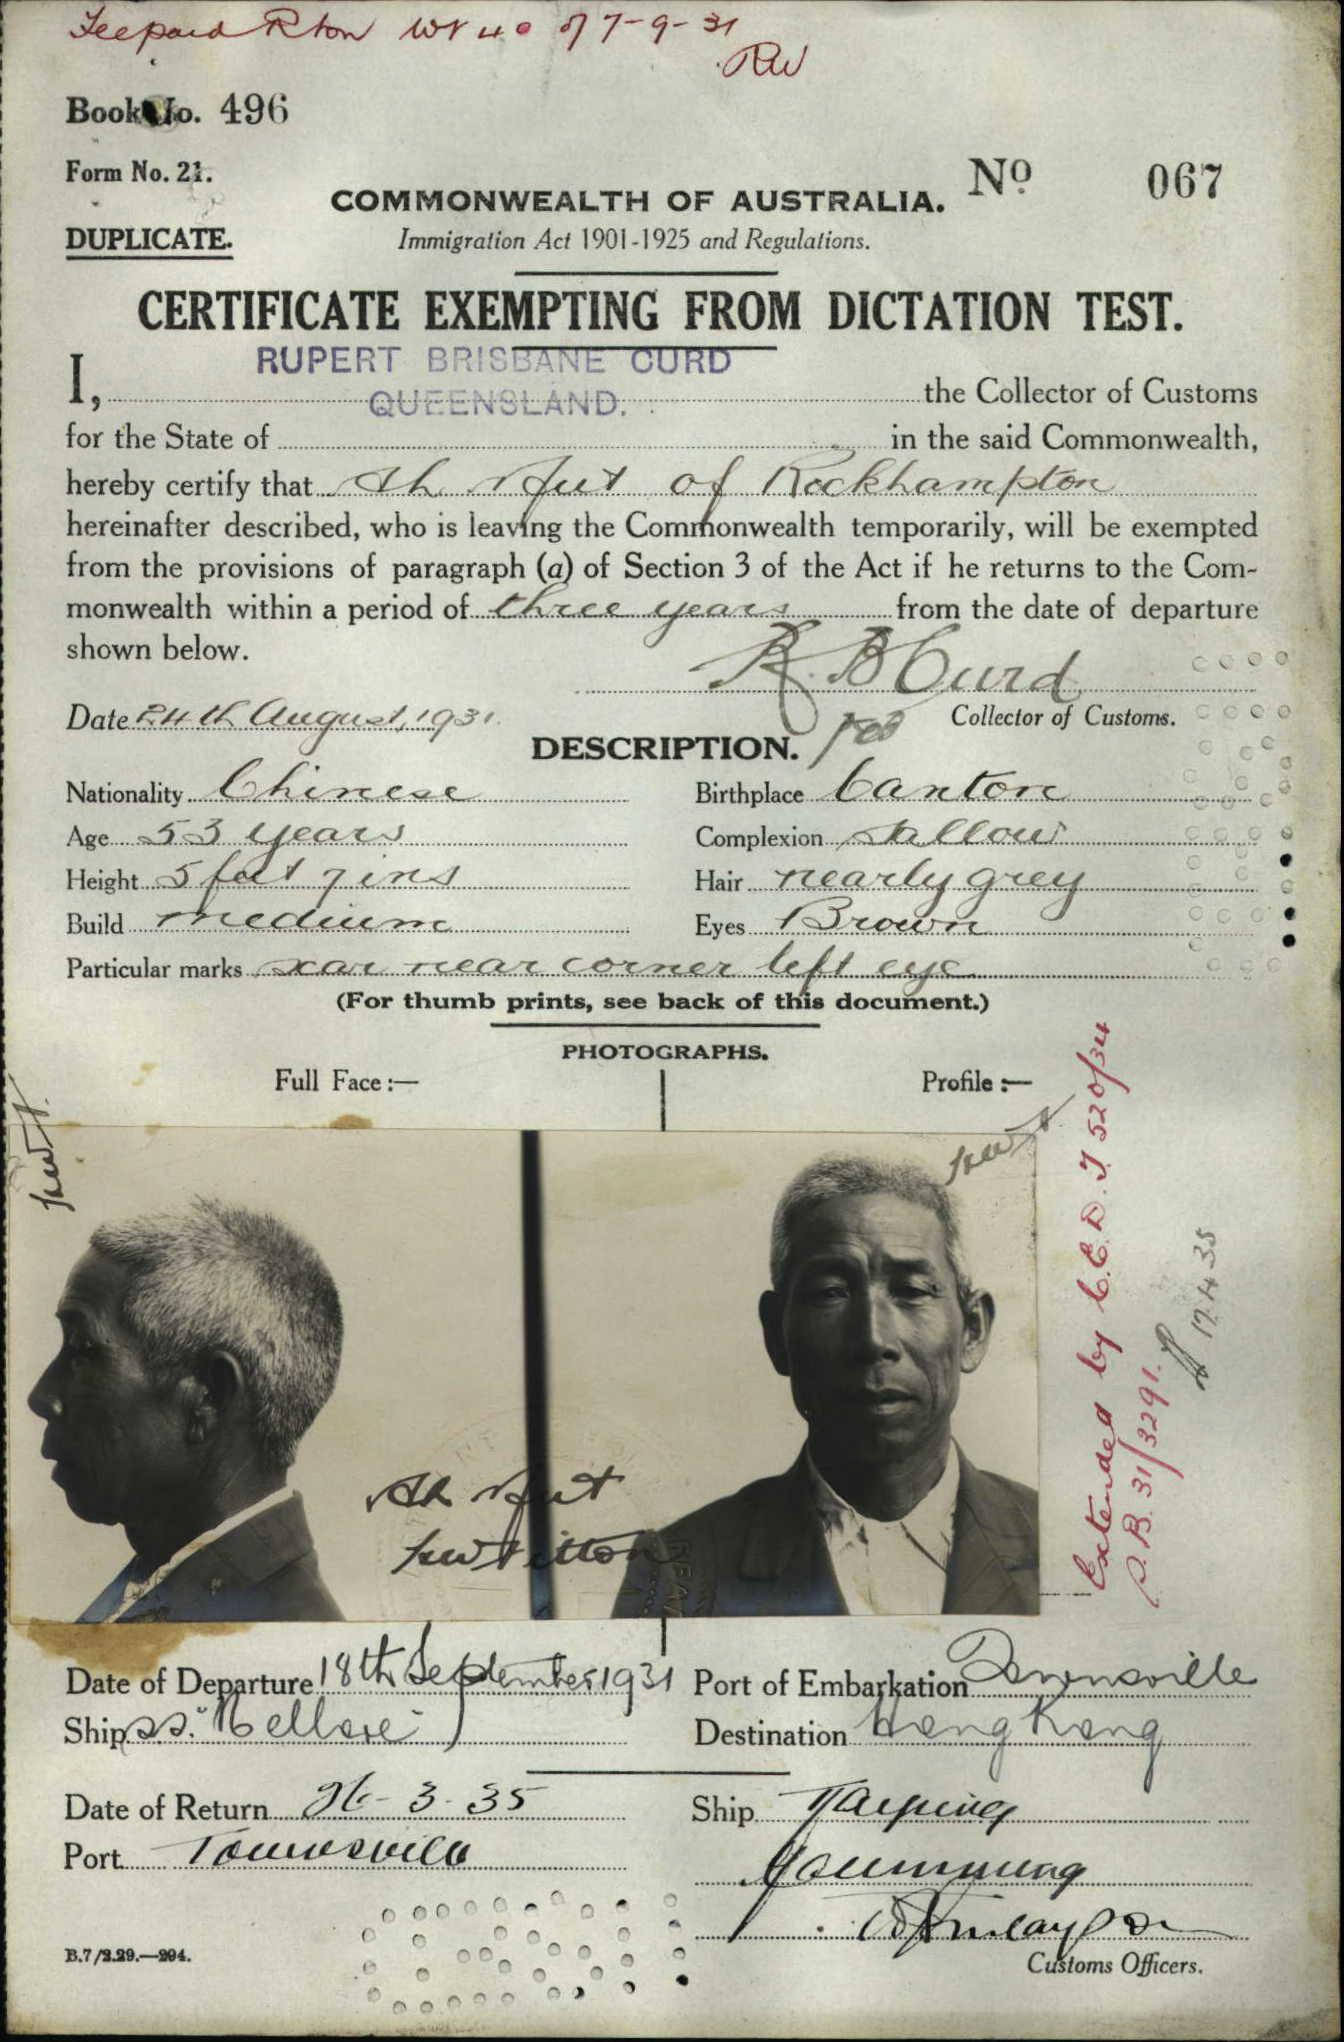 Rton of 7-9-31
RW
Book No. 496
Form No. 21.
Nº 067
COMMONWEALTH OF AUSTRALIA.
DUPLICATE.
Immigration Act 1901-1925 and Regulations.
CERTIFICATE EXEMPTING FROM DICTATION TEST.
RUPERT BRISBANE CURD
I, the Collector of Customs
QUEENSLAND.
for the State of in the said Commonwealth,
hereby certify that Ah of Rockhampton
hereinafter described, who is leaving the Commonwealth temporarily, will be exempted
from the provisions of paragraph (a) of Section 3 of the Act if he returns to the Com-
monwealth within a period of three years from the date of departure
shown below.
R. B Curd
Date 24th August, 1931. Collector of Customs.
DESCRIPTION.
Nationality Chinese Birthplace Canton
Age 53 years Complexion Sallow
Height 5 feet 7 ins Hair nearly grey
Build medium Eyes Brown
Particular marks scar near corner left eye
(For thumb prints, see back of this document.)
PHOTOGRAPHS.
Full Face:— Profile:—
Extended by C.E.D.T 520/34
31/3291.
17.4.35
Ah
Date of Departure 18th September 1931 Port of Embarkation Townsville
Ship s.s. "Nellore" Destination Hong Kong
Date of Return 26-3-35 Ship Taiping
Port Townsville
Customs Officers.
B.7/3.29.—294.